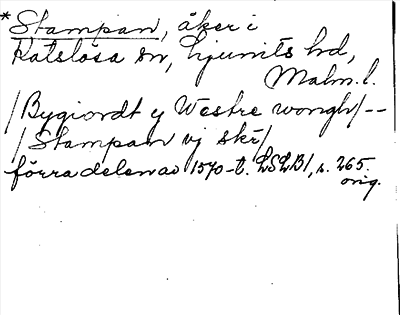 *Stampan, åker i
Katslösa sn, Ljunits hd,
Malm. l.
/Bygiordt y Westre wongh/--
/Stampan vj skr/
förra delen av 1570-t. LSLB1, s. 265.
orig.